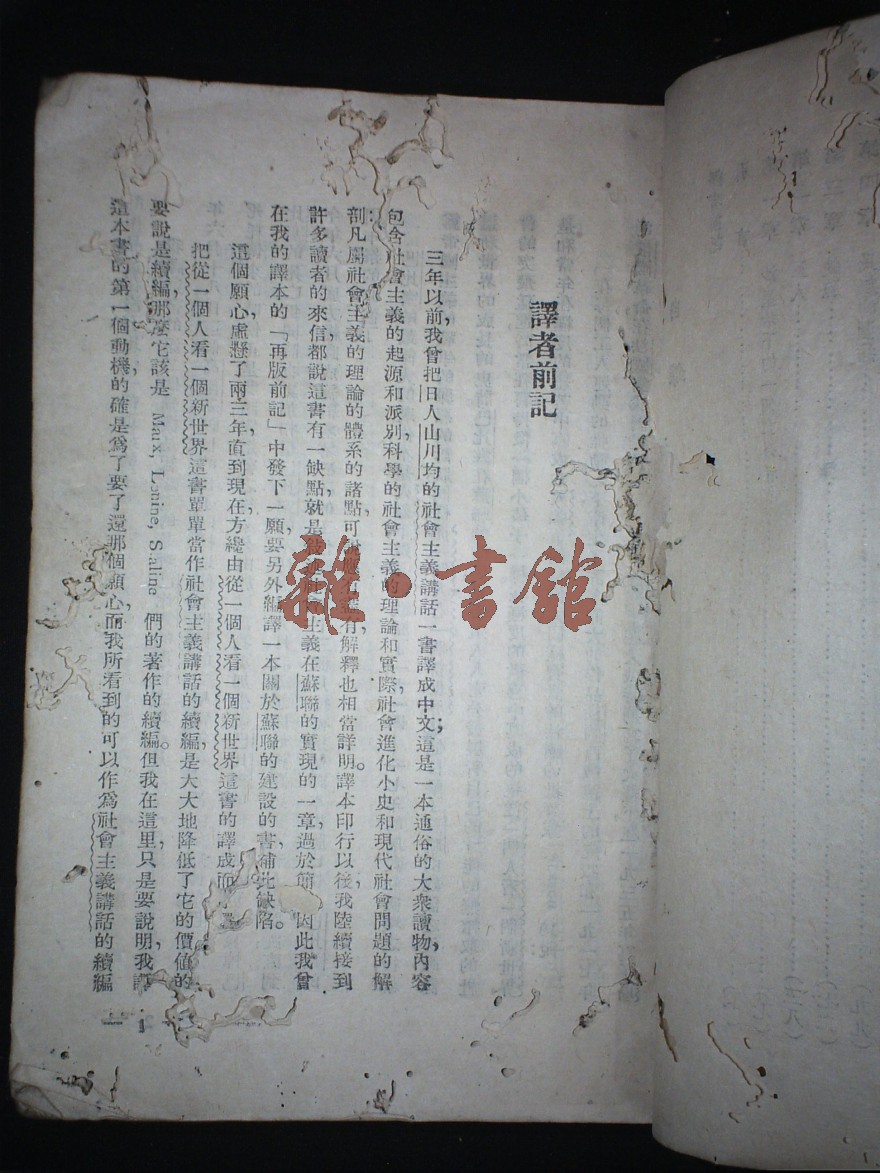 譯者前記
三年以前,我曾把日人山川均的社會主義講話一書譯成中文;這是一本通俗的大衆讀物,內容
包含社會主義的起源和派別,科學的社會主義的理論和實際,社會進化小史和現代社會問題的解
剖,凡屬社會主義的理論的體系的諸點,可說應有盡有,解釋也相當詳明。譯本印行以後,我陸續接到
許多讀者的來信,都說這書有一缺點,就是敍述社會主義在蘇聯的實現的一章過於簡,因此我曾
在我的譯本的「再版前記」中發下一願,要另外編譯一本關於蘇聯的建設的書,補此缺陷。
這個願心虛懸了兩三年,直到現在,方纔由從一個人看一個新世界這書的譯成而了
把從一個人看一個新世界這書單單當作社會主義講話的續編,是大大地降低了它的價值的
要說是續編,那麼它該是 Marx, Lenine, Staline 們的著作的續編。但我在這里,只是要說明,我譯
這本書的第一個動機,的確是爲了要了還那個願心,而我所看到的可以作爲社會主義講話的續編
— 1 —
雜·書館